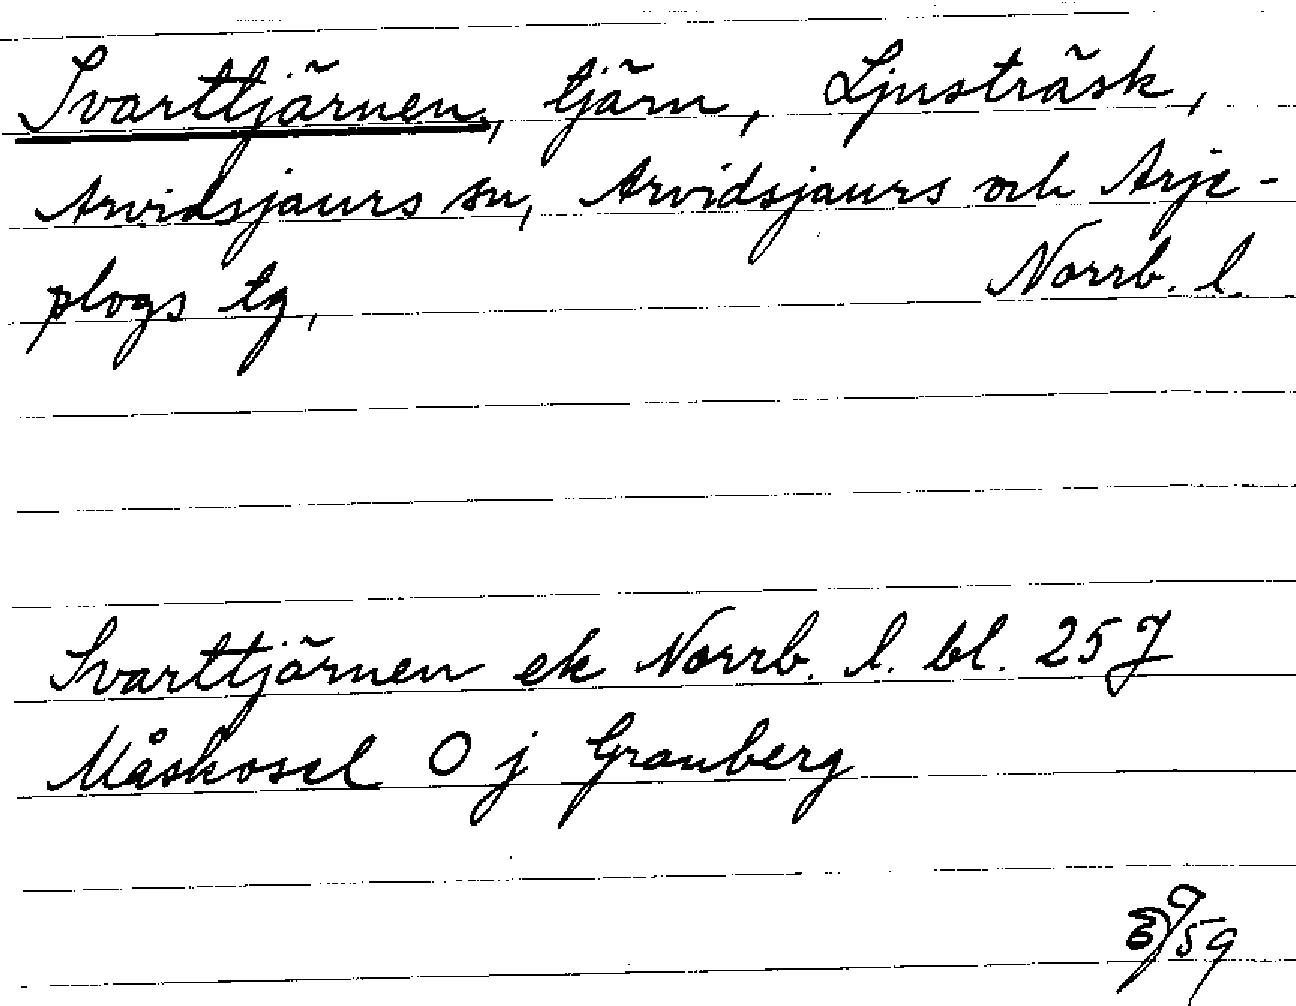 Svarttjärnen, tjärn, Ljusträsk,
Arvidsjaurs sn, Arvidsjaurs och Arje-
plogs tg,
Norrb. l.
Svarttjärnen ek Norrb. l. bl. 25 J
Måskosel O j Granberg
59